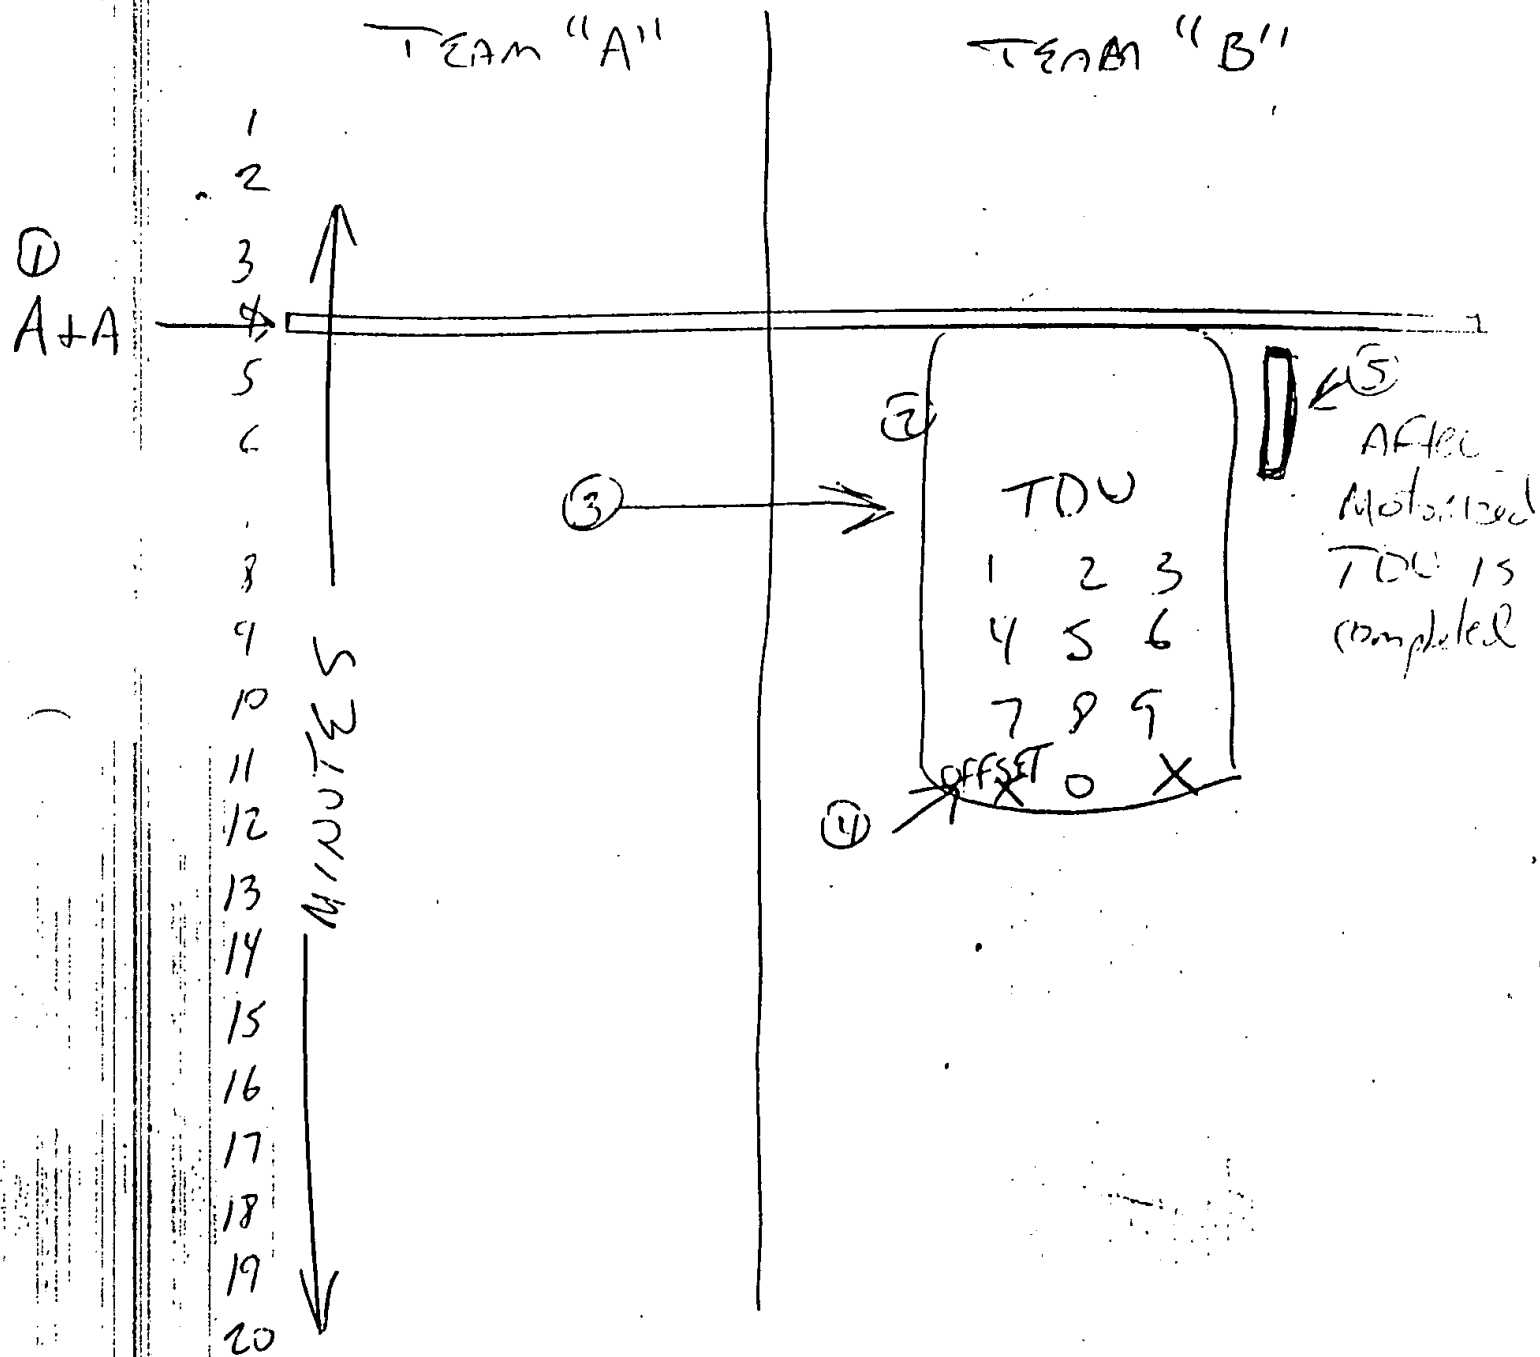 TEAM "A"
TEAM "B"
1
2
①
3
A+A
4
5
6
8
9
10
11
12
13
14
15
16
17
18
19
20
MINUTES
②
③
TDU
1 2 3
4 5 6
7 8 9
OFFSET
X 0 X
④
⑤
After
Motorized
TDU is
completed